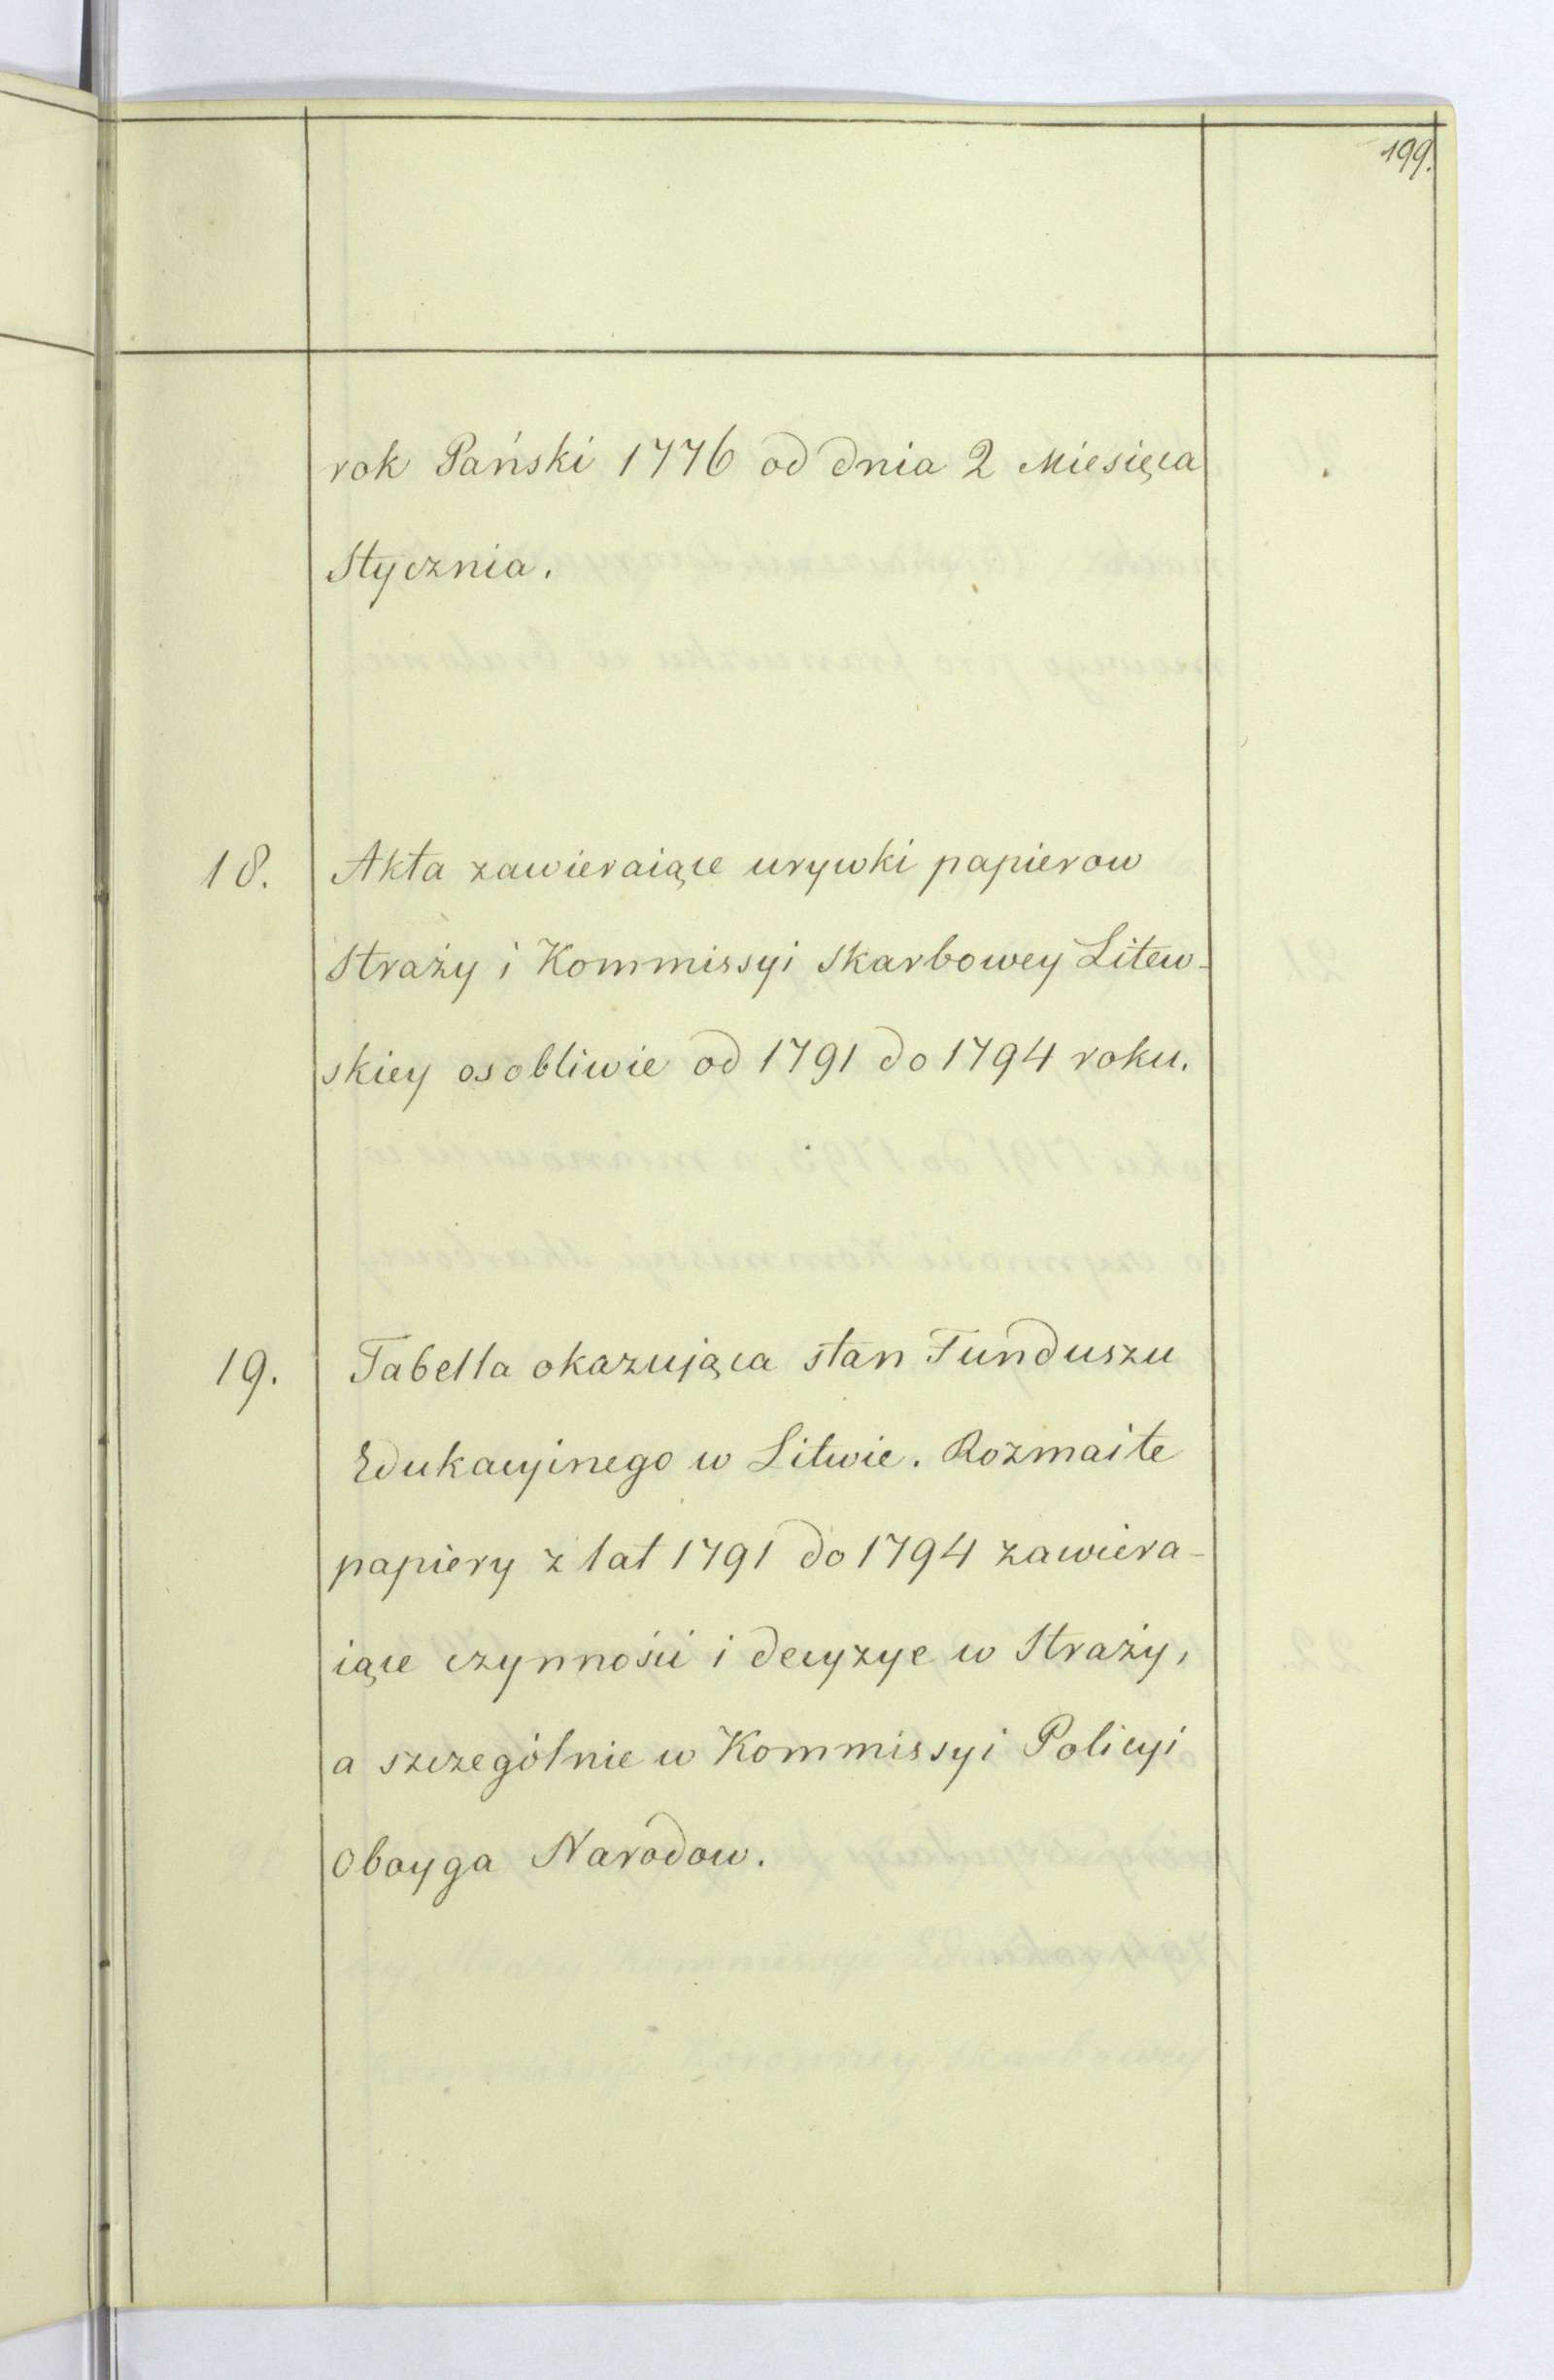 199.
rok Pański 1776 od dnia 2 Miesięca
Stycznia.
18. Akta zawieraiące urywki papierow
Straży i Kommissyi Skarbowey Litew-
skiey osobliwie od 1791 do 1794 roku.
19. Tabella okazująca stan Funduszu
Edukacyinego w Litwie. Rozmaite
papiery z lat 1791 do 1794 zawiera-
iące czynności i decyzye w Straży,
a szczególnie w Kommissyi Policyi
Oboyga Narodow.